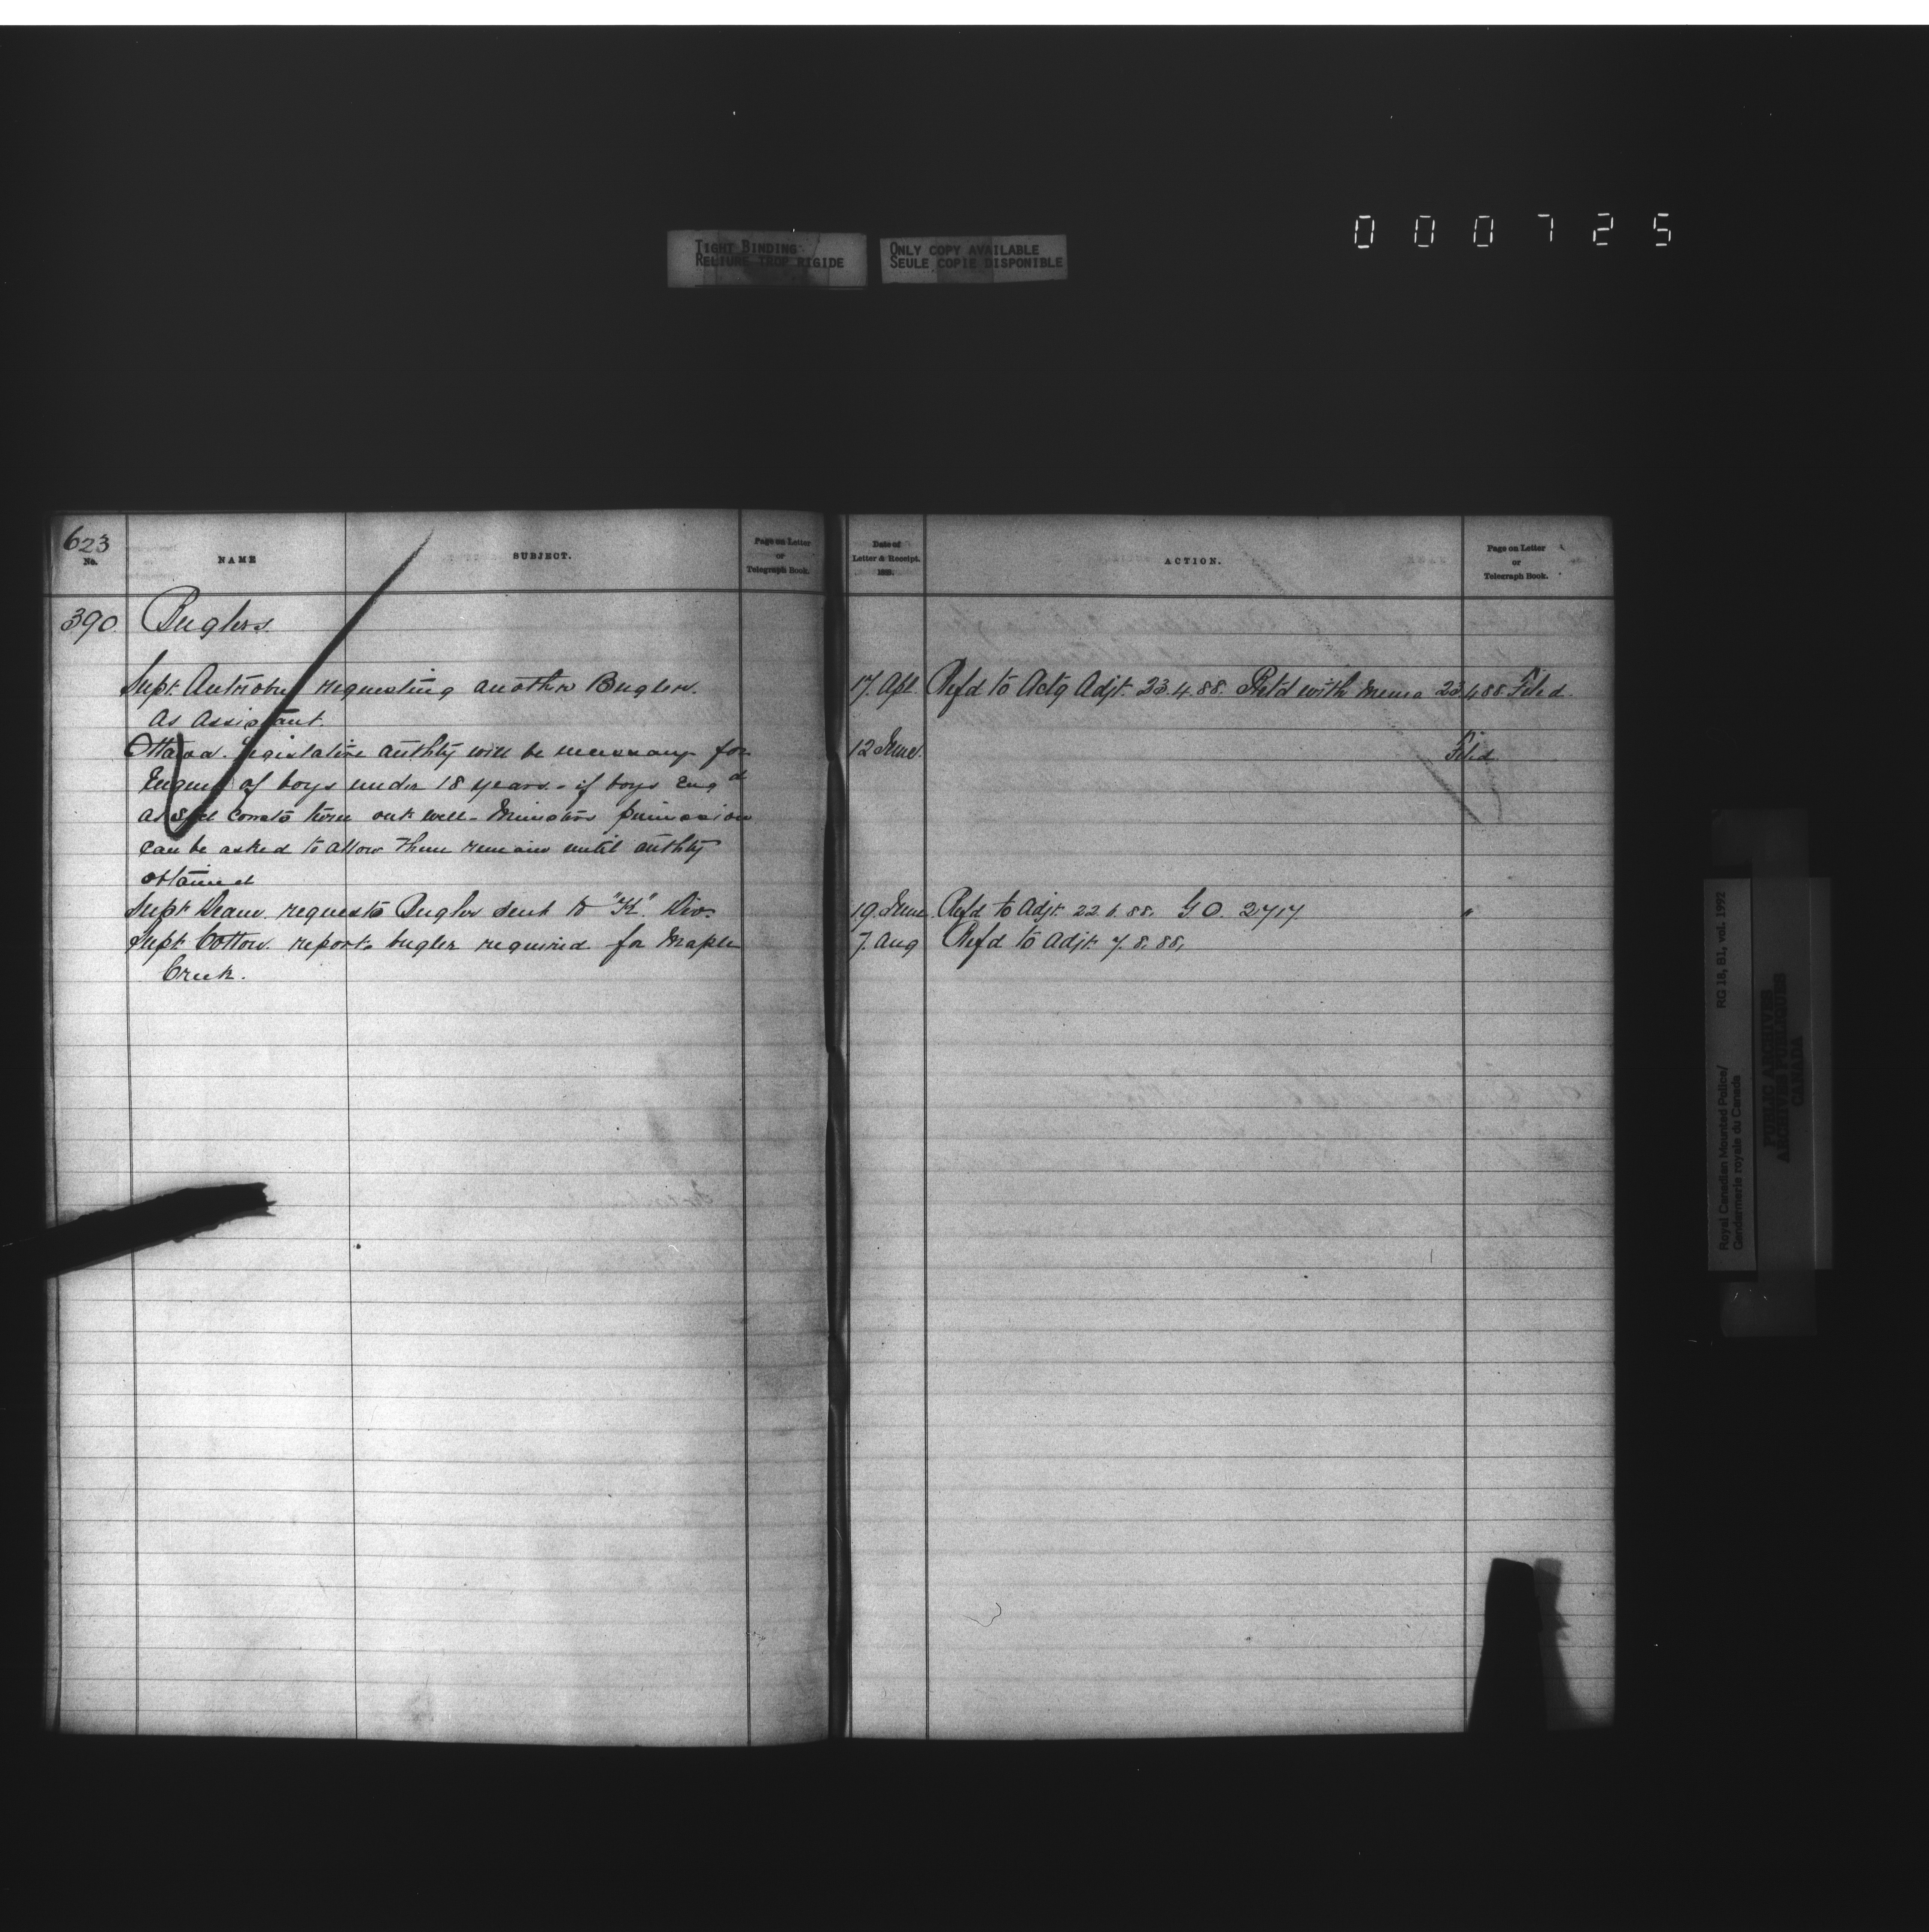 000725
TIGHT BINDING
RELIURE TROP RIGIDE
ONLY COPY AVAILABLE
SEULE COPIE DISPONIBLE
623
No.
NAME
SUBJECT.
Page on Letter
or
Telegraph Book.
Date of
Letter & Receipt.
188
ACTION.
Page on Letter
or
Telegraph Book.
390. Buglers.
Supt. Antrobus requesting another Bugler. 17. Apl. Refd to Actg Adjt. 23.4.88. Ret'd with memo 23.4.88. Filed.
As Assistant.
Ottawa. Legislative authty will be necessary for 12 June. Filed.
Engmt of boys under 18 years. - if boys Engd
as Spcl Consts turn out well - Ministers permission
can be asked to allow them remain until authty
obtained
Supt Deane requests Bugler sent to "K". Div. 19. June. Refd to Adjt. 22.6.88. G.O. 2717 "
Supt Cotton reports bugler required for Maple 7. Aug Refd to Adjt. 7.8.88.
Creek.
Royal Canadian Mounted Police/ RG 18, B1, vol. 1992
Gendarmerie royale du Canada
PUBLIC ARCHIVES
ARCHIVES PUBLIQUES
CANADA